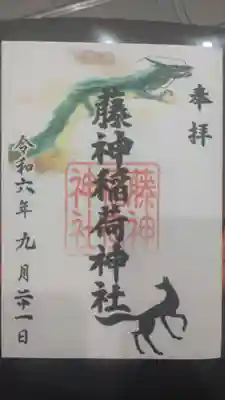 奉拝
藤神稲荷神社
藤神
稲荷
神社
令和六年九月二十一日